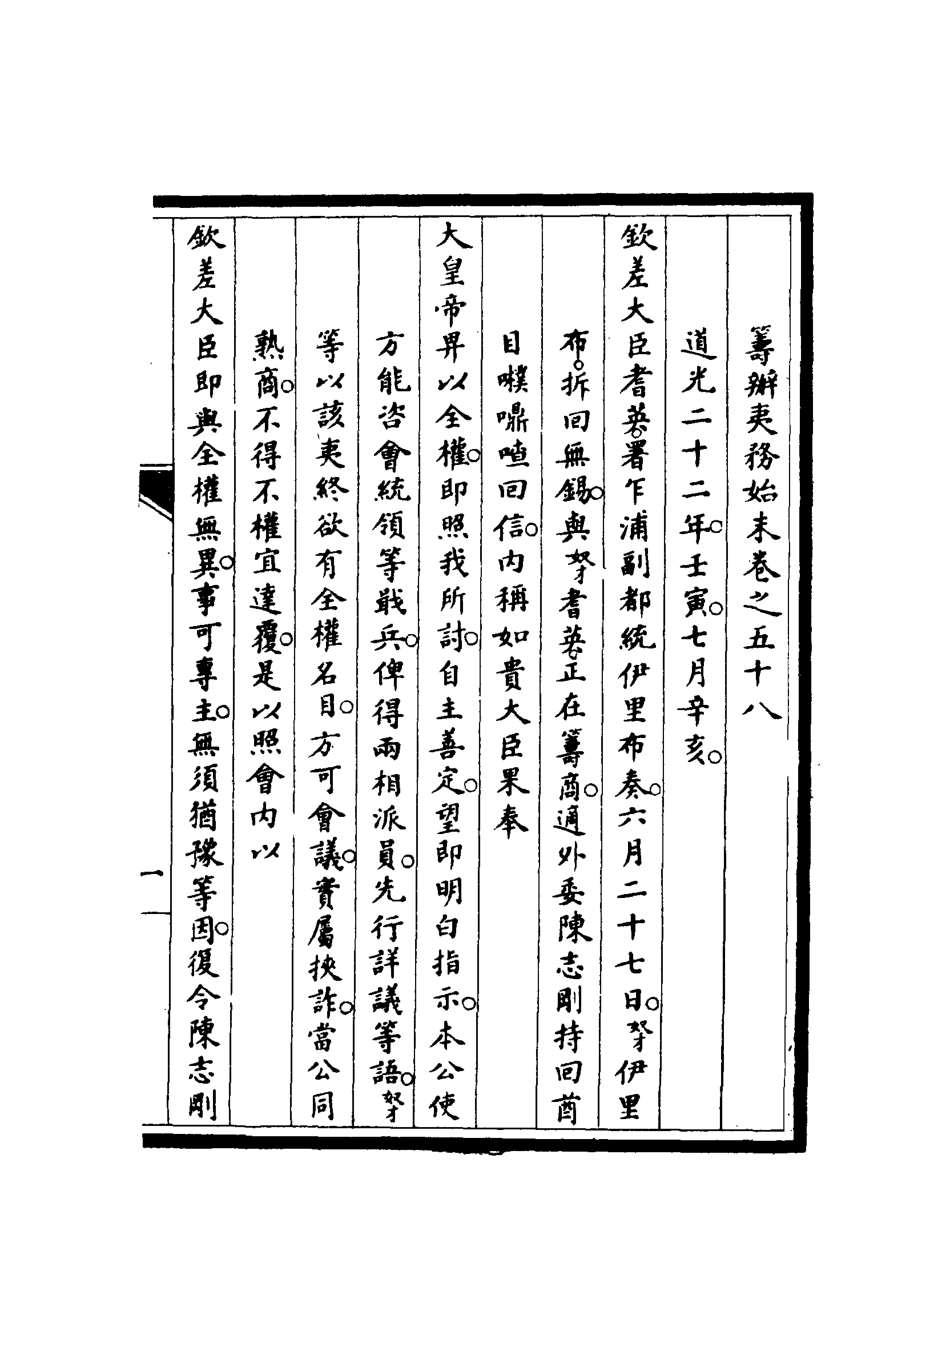 籌辦夷務始末卷之五十八
道光二十二年。壬寅。七月辛亥。
欽差大臣耆英。署乍浦副都統伊里布奏。六月二十七日。奴才伊里
布。拆回無錫。與奴才耆英正在籌商。適外委陳志剛持回酋
目㗼㘄喳回信。內稱如貴大臣果奉
大皇帝畀以全權。即照我所討。自主善定。望即明白指示。本公使
方能咨會統領等戢兵。俾得兩相派員。先行詳議等語。奴才
等以該夷終欲有全權名目。方可會議。實屬挾詐。當公同
熟商。不得不權宜達覆。是以照會內以
欽差大臣即與全權無異。事可專主。無須猶豫等因。復令陳志剛
一